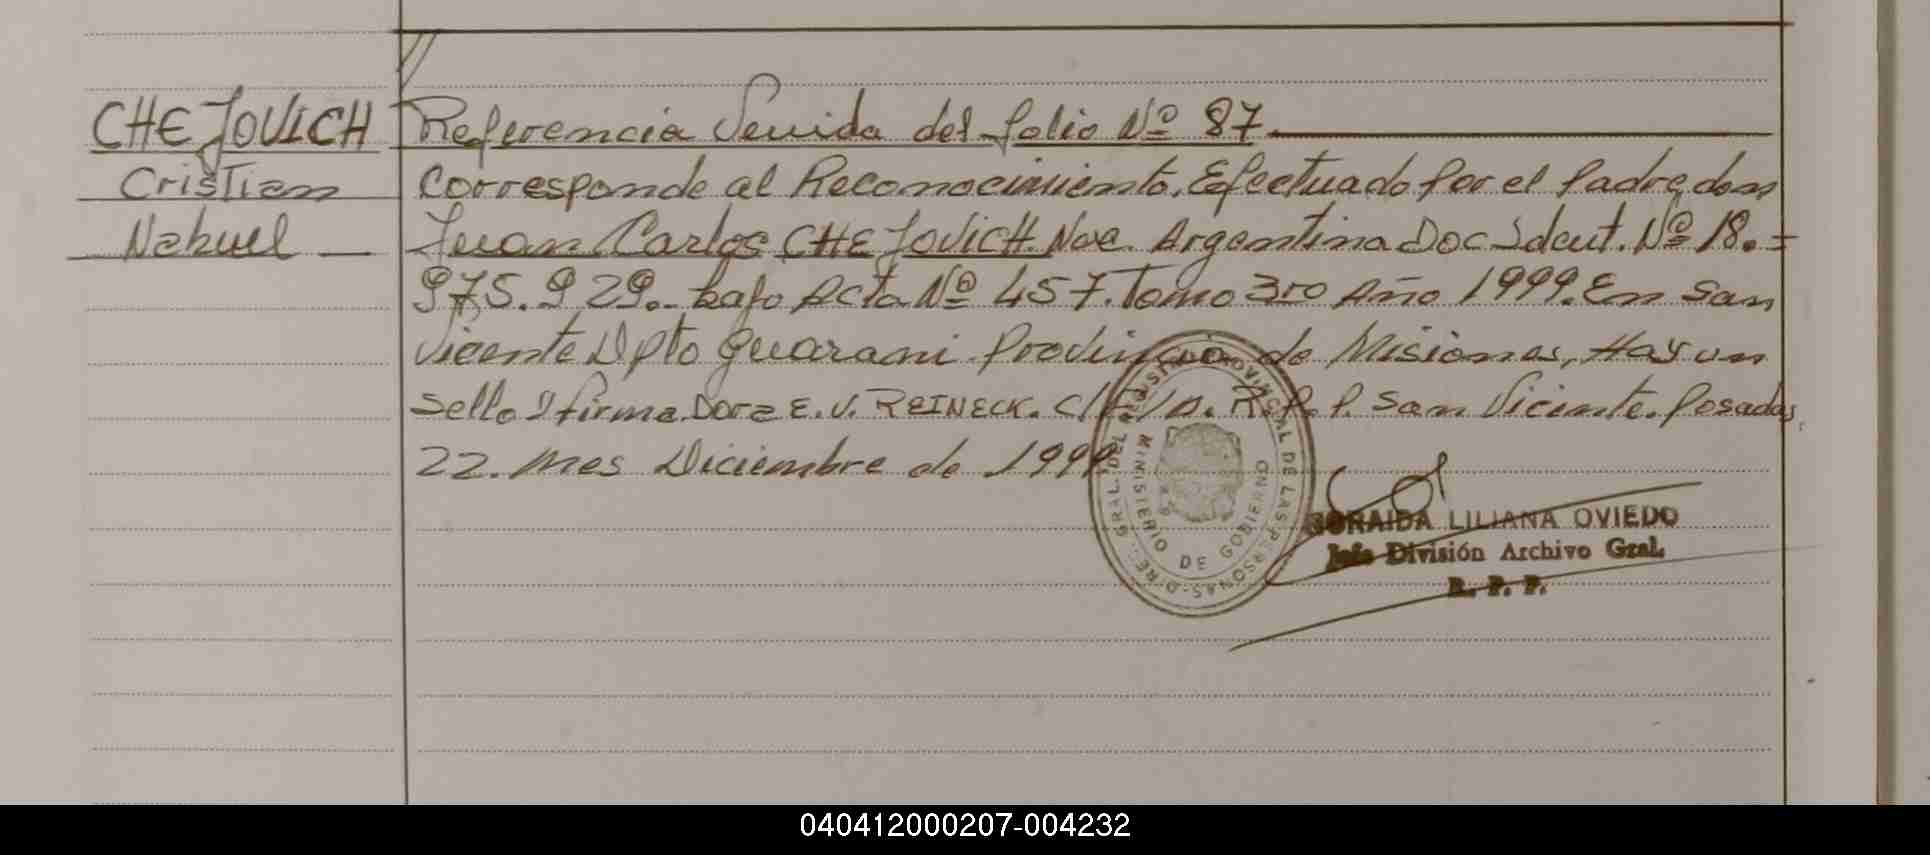 CHEJOVICH
Cristian
Nahuel
Referencia Venida del folio Nº 87
Corresponde al Reconocimiento. Efectuado Por el Padre don
Juan Carlos CHEJOVICH. Nac. Argentina Doc Ident. Nº 18.=
975.929. bajo Acta Nº 457. Tomo 3ro Año 1999. En San
Vicente Dpto Guarani Provincia de Misiones, Hay un
Sello y firma. Dora E. V. REINECK. R.P.P. San Vicente. Posadas,
22. mes Diciembre de 1999
DIREC. GRAL. DEL REGISTRO PROVINCIAL DE LAS PERSONAS
MINISTERIO DE GOBIERNO
SORAIDA LILIANA OVIEDO
Jefe División Archivo Gral.
R. P. P.
040412000207-004232